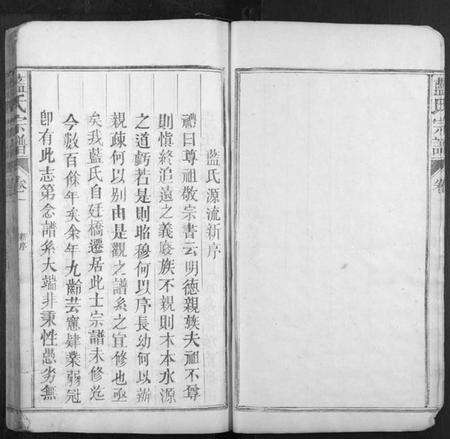 藍氏源流新序
禮曰尊祖敬宗書云明德親族夫祖不尊
則愼終追遠之義廢族不親則木本水源
之道虧若是則昭穆何以序長幼何以辨
親疎何以别由是觀之譜系之宜修也亟
矣我藍氏自過橋遷居此土宗譜未修迄
今數百餘年矣余年九齡芸窻肄業弱冠
卽有此志第念譜系大端非秉性愚劣無
藍氏宗譜
卷一
新序
一
藍氏宗譜
卷